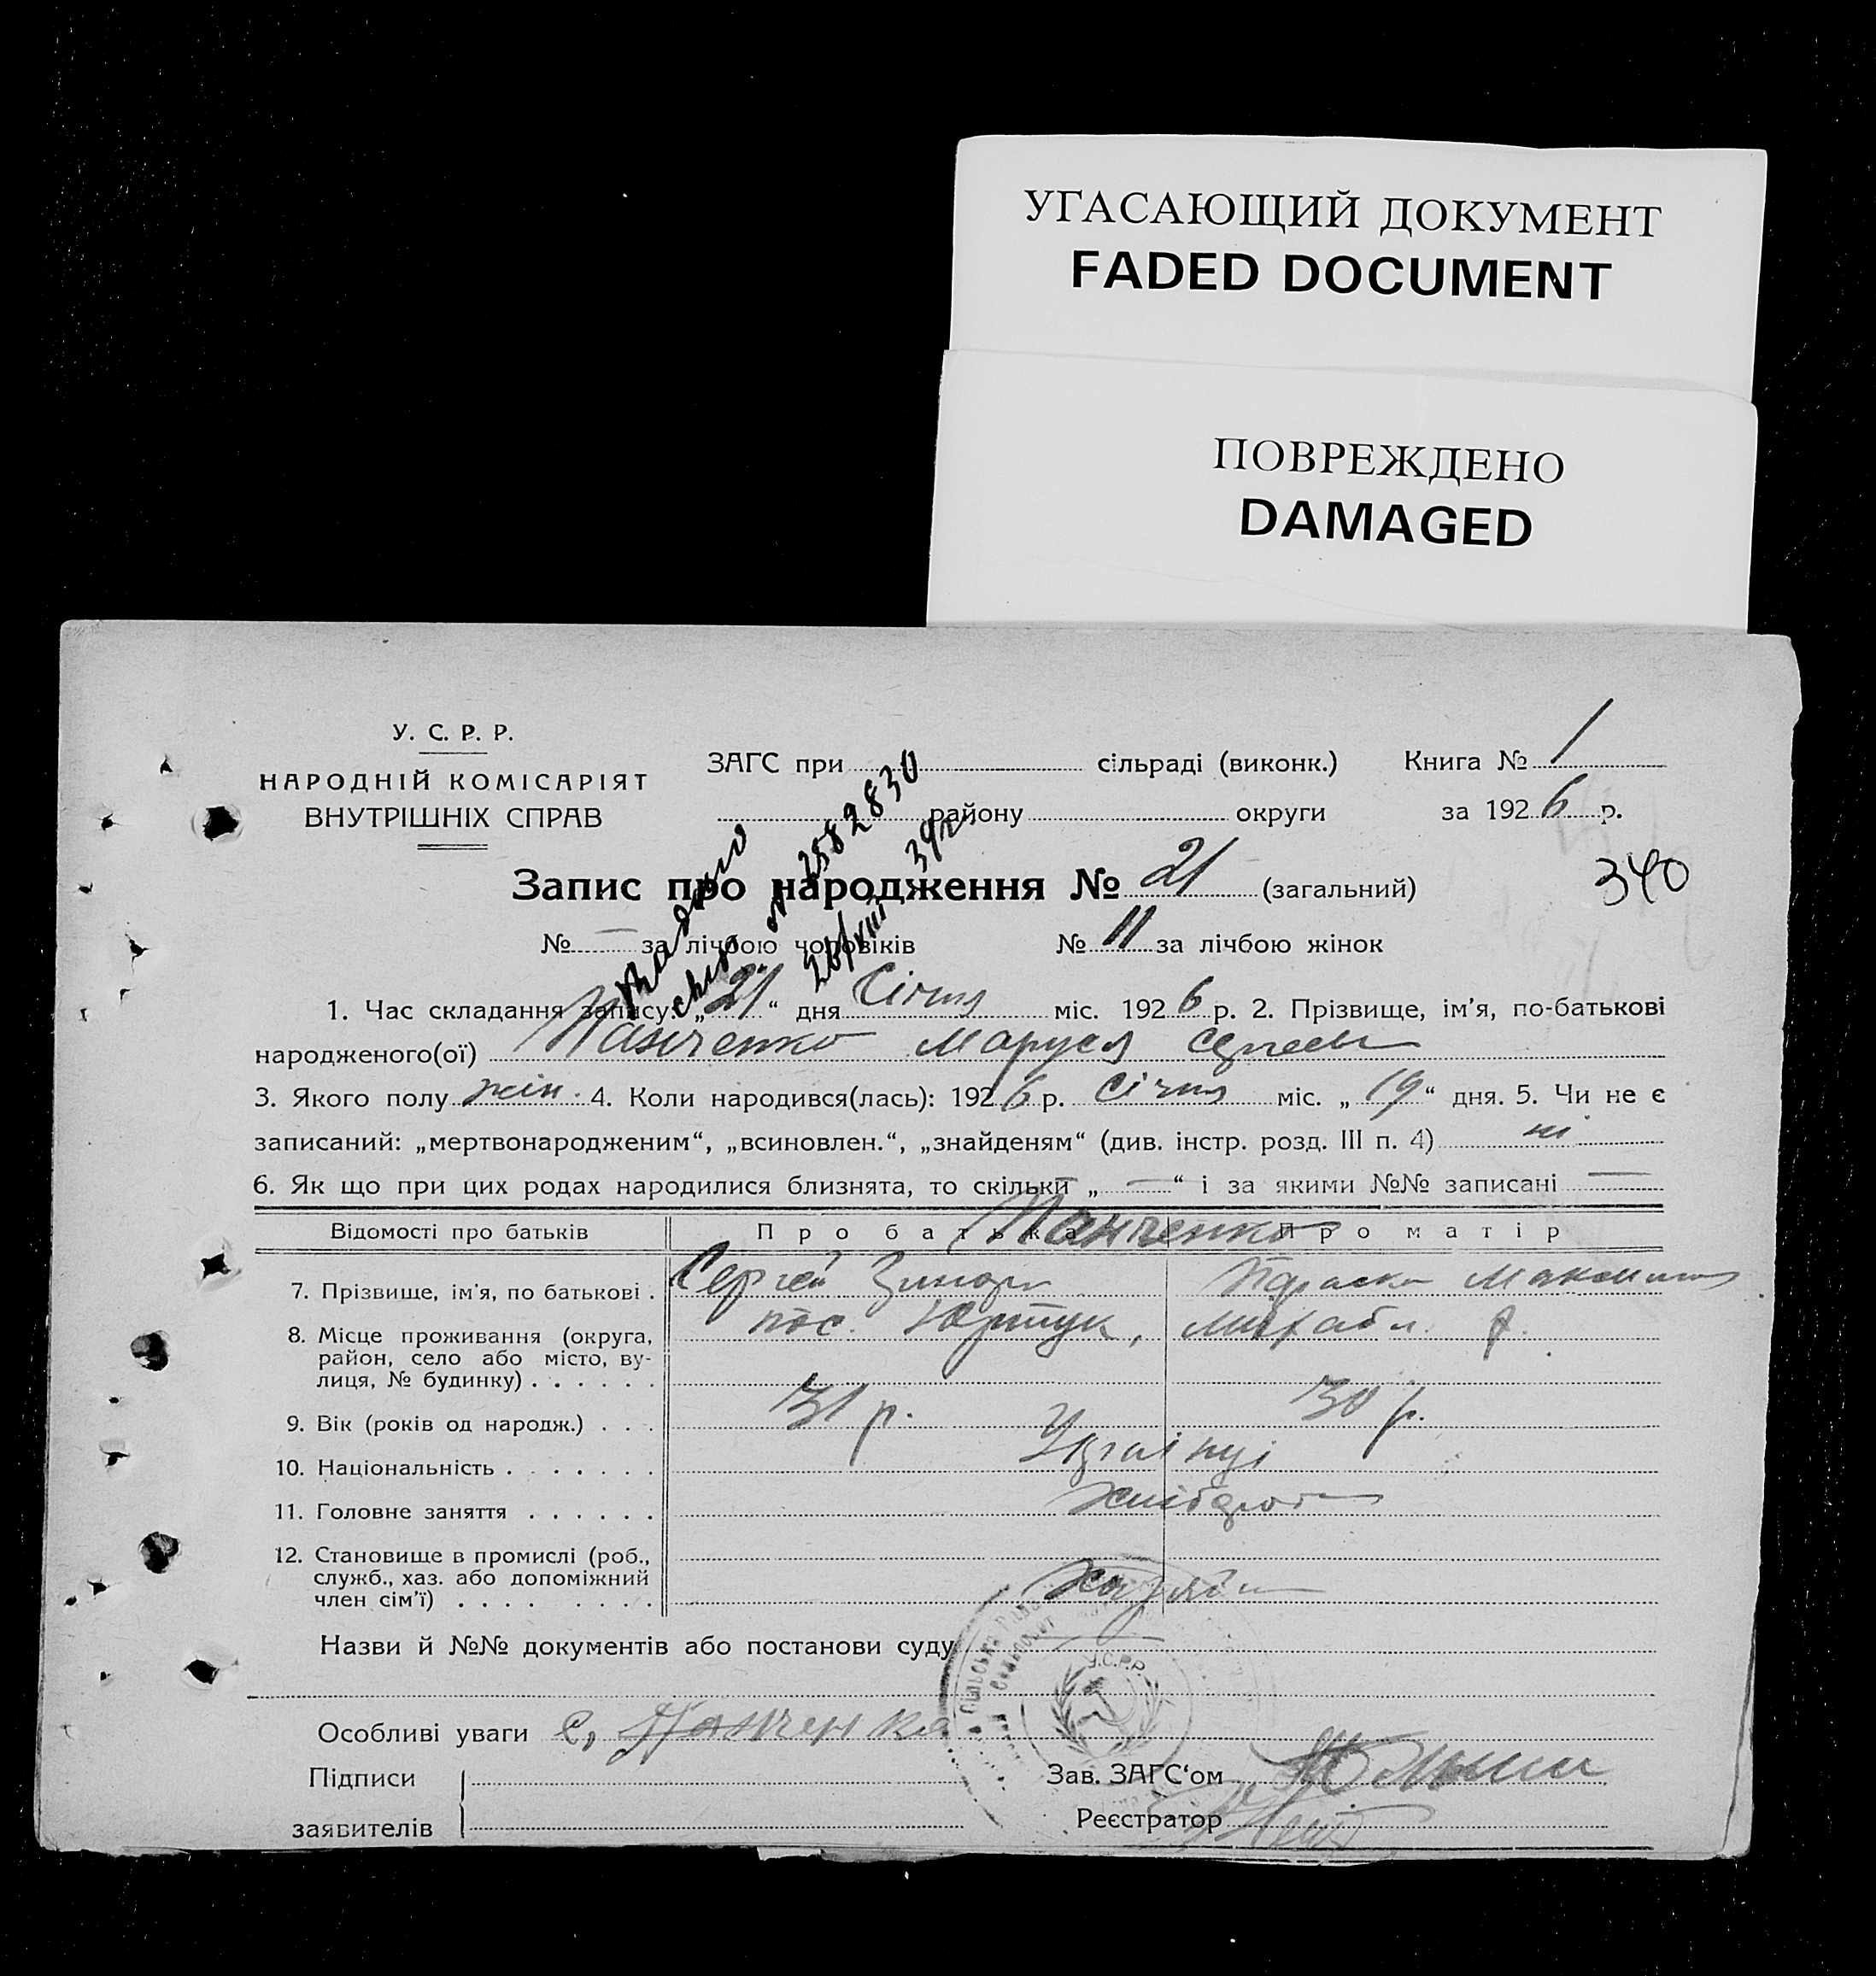 УГАСАЮЩИЙ ДОКУМЕНТ
FADED DOCUMENT
ПОВРЕЖДЕНО
DAMAGED
У. С. Р. Р.
НАРОДНІЙ КОМІСАРІЯТ
ВНУТРІШНІХ СПРАВ
ЗАГС при сільраді (виконк.) Книга № 1
району округи за 1926 р.
Видано
2582830
39г.
Запис про народження № 21 (загальний)
340
№ — за лічбою чоловіків № 11 за лічбою жінок
1. Час складання запису: „21“ дня Січня міс. 1926 р. 2. Прізвище, ім'я, по-батькові
народженого(ої) Панченко Маруся
3. Якого полу жін. 4. Коли народився(лась): 1926 р. Січня міс. „19“ дня. 5. Чи не є
записаний: „мертвонародженим“, „всиновлен.“, „знайденям“ (див. інстр. розд. III п. 4) ні
6. Як що при цих родах народилися близнята, то скільки „—“ і за якими №№ записані —
Відомості про батьків Про батька Про матір
Панченко
7. Прізвище, ім'я, по батькові . Сергей
8. Місце проживання (округа, пос.
район, село або місто, ву-
лиця, № будинку) . . . . . .
9. Вік (років од народж.) . . . 31 р. 30 р.
10. Національність . . . . . . . Українці
11. Головне заняття . . . . . .
12. Становище в промислі (роб.,
служб., хаз. або допоміжний
член сім'ї) . . . . . . . .
Назви й №№ документів або постанови суду
У.С.Р.Р.
Особливі уваги С, Панченко
Підписи
заявителів
Зав. ЗАГС'ом
Реєстратор